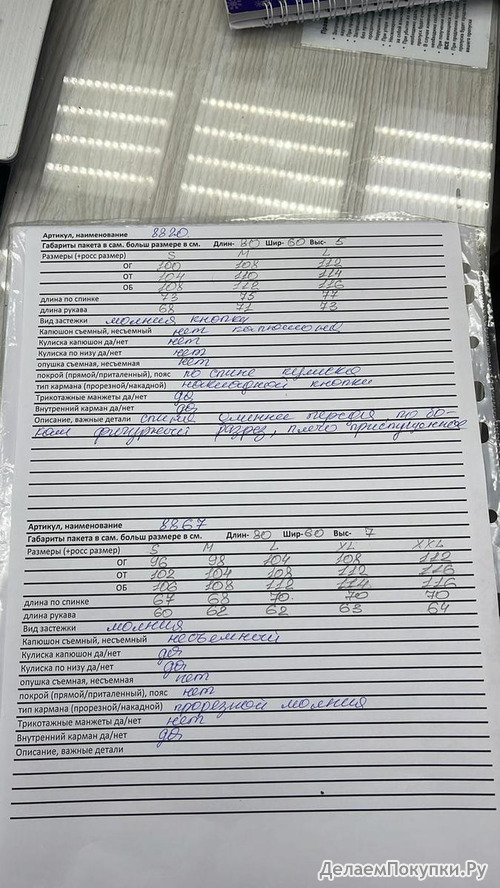 Артикул, наименование 8820
Габариты пакета в сам. больш размере в см. Длин- 80 Шир- 60 Выс- 5
Размеры (+росс размер) S M L
ОГ 100 108 112
ОТ 104 110 114
ОБ 108 112 116
длина по спинке 73 75 77
длина рукава 68 71 73
Вид застежки молния кнопки
Капюшон съемный, несъемный нет капюшона
Кулиска капюшон да/нет нет
Кулиска по низу да/нет нет
опушка съемная, несъемная нет
покрой (прямой/приталенный), пояс по спине кулиска
тип кармана (прорезной/накадной) накладной кнопки
Трикотажные манжеты да/нет да
Внутренний карман да/нет да
Описание, важные детали по бо-
кам фигурный разрез, плечо приспущенное
Артикул, наименование 8867
Габариты пакета в сам. больш размере в см. Длин- 80 Шир- 60 Выс- 7
Размеры (+росс размер) S M L XL XXL
ОГ 96 98 104 108 112
ОТ 102 104 108 112 116
ОБ 106 108 112 114 116
длина по спинке 67 68 70 70 70
длина рукава 60 62 62 63 64
Вид застежки молния
Капюшон съемный, несъемный несъемной
Кулиска капюшон да/нет да
Кулиска по низу да/нет да
опушка съемная, несъемная нет
покрой (прямой/приталенный), пояс нет
тип кармана (прорезной/накадной) прорезной молния
Трикотажные манжеты да/нет нет
Внутренний карман да/нет да
Описание, важные детали
ДелаемПокупки.Ру